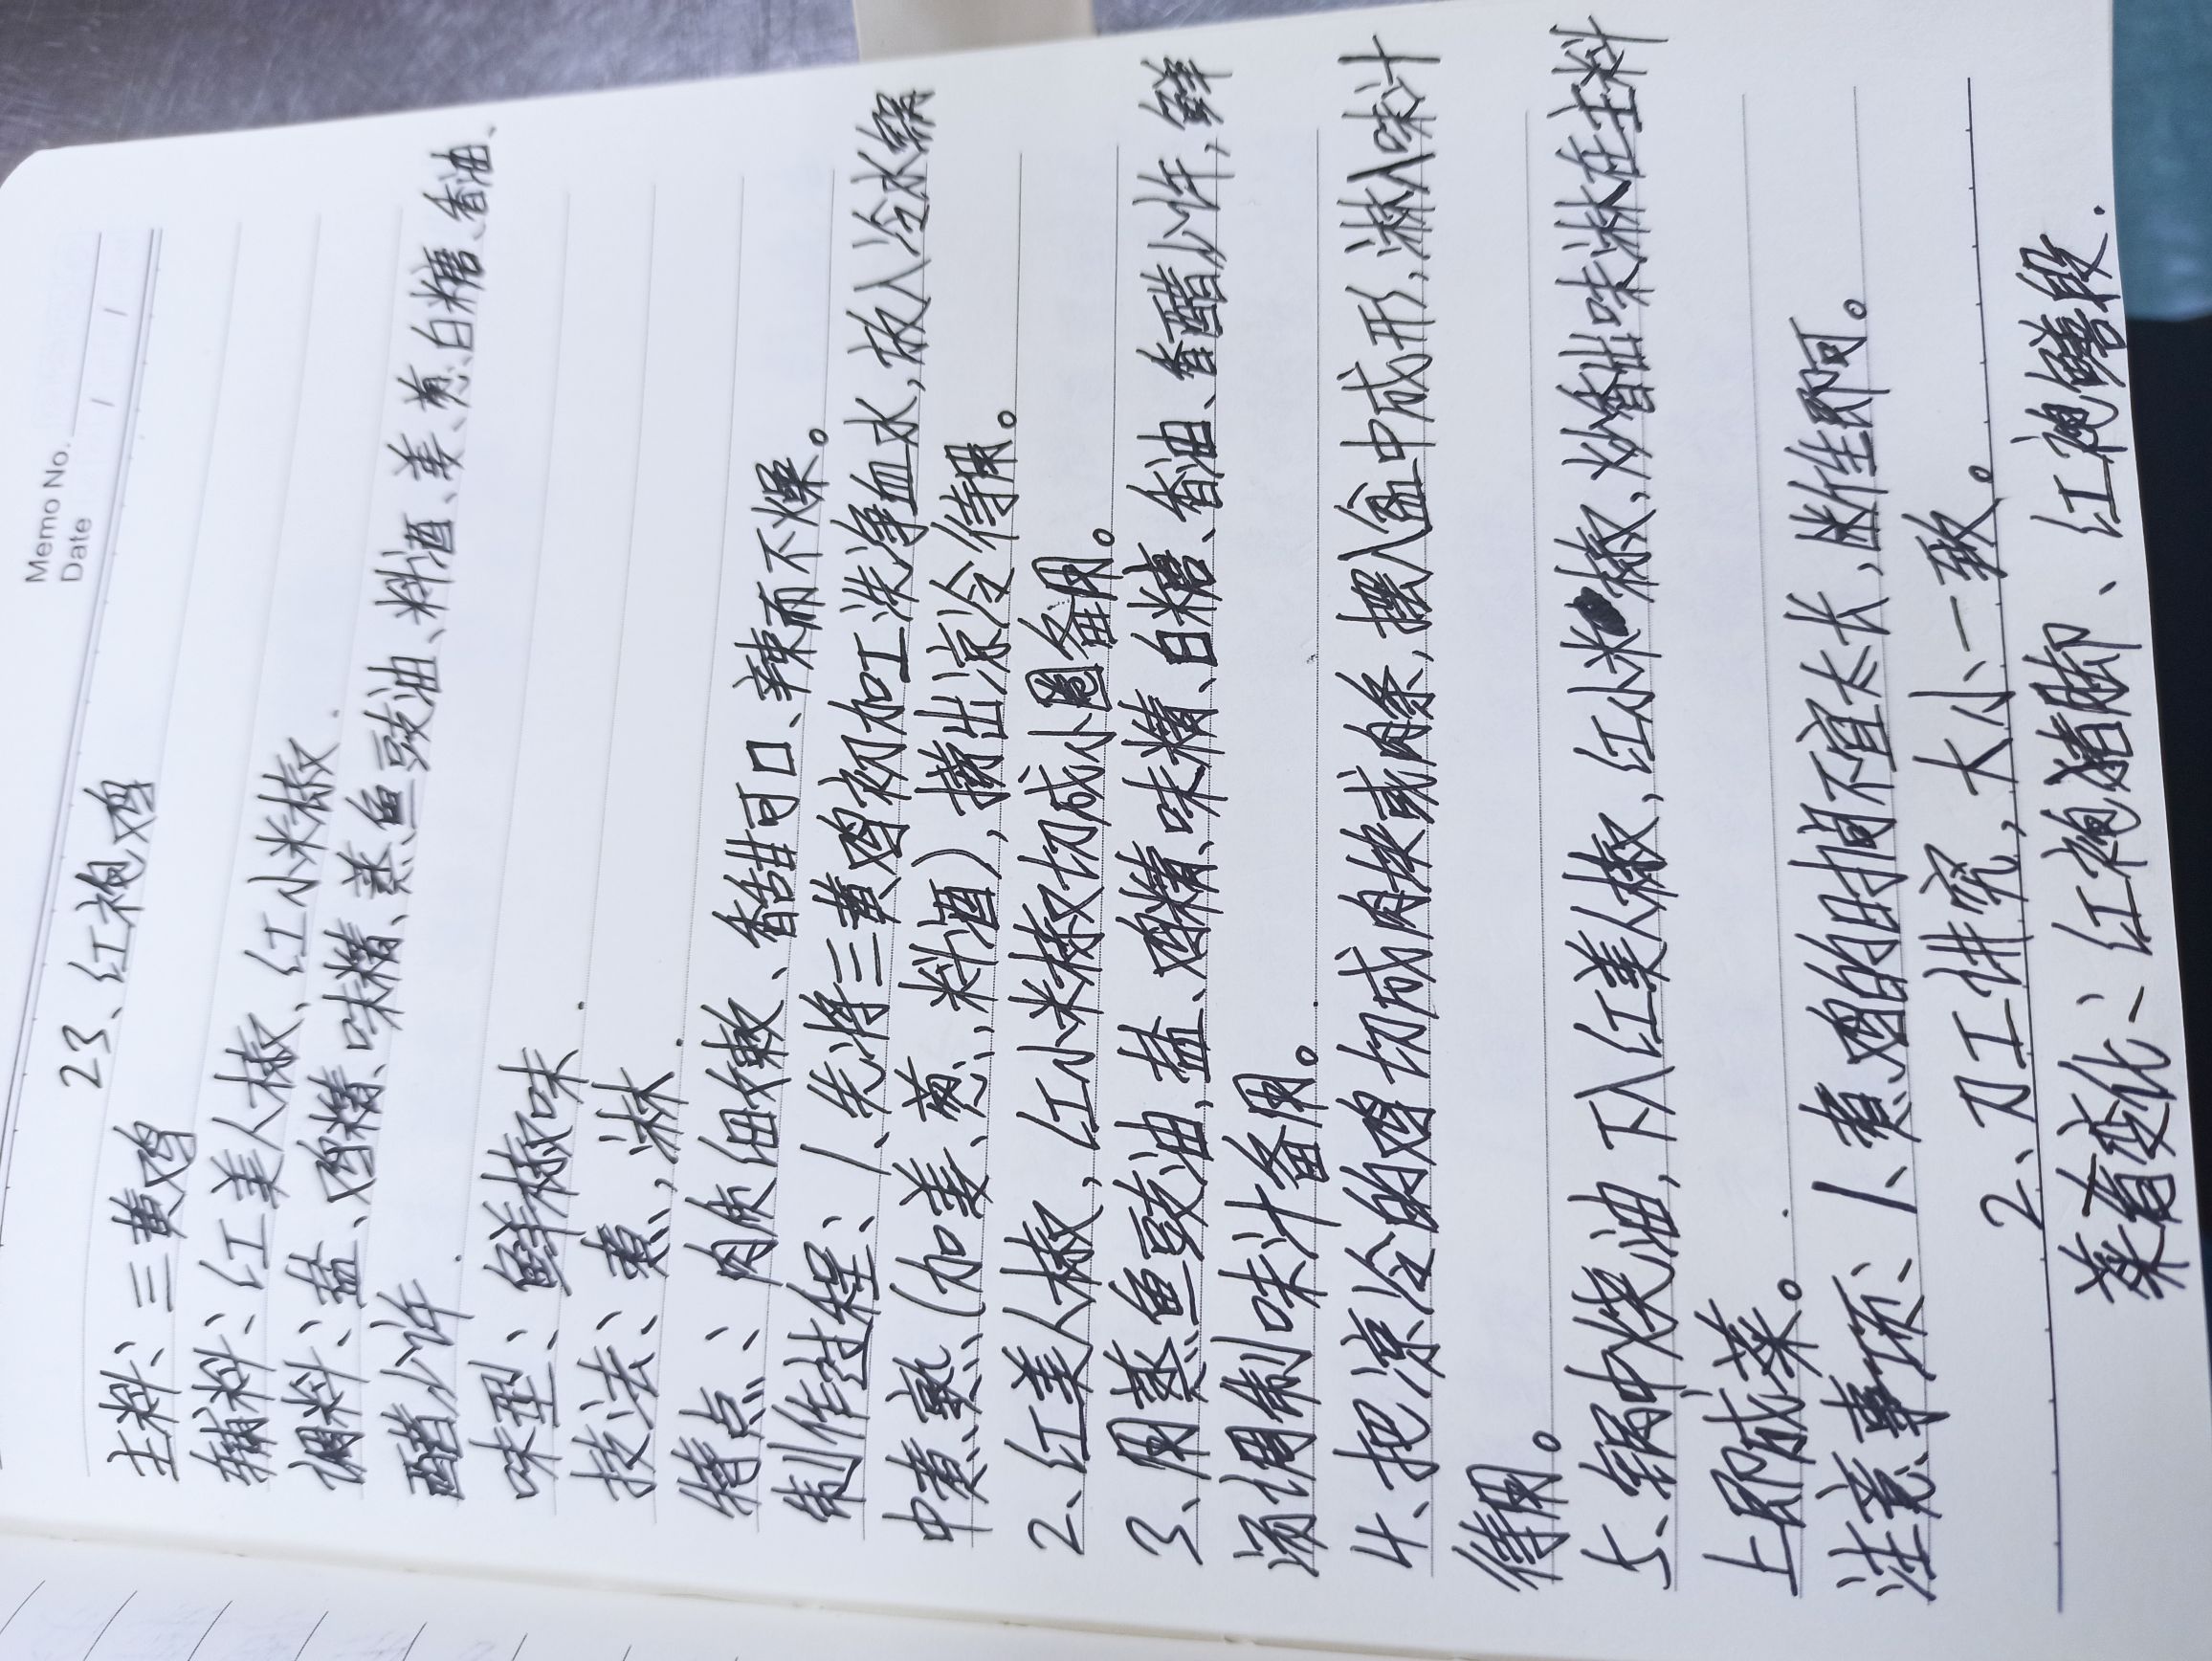 Memo No.
Date / /
23、红袍鸡
主料、三黄鸡
辅料、红美人椒、红小米椒.
调料、盐、鸡精、味精、蒸鱼豉油、料酒、姜、葱、白糖、香油、
醋少许.
味型、鲜椒味.
技法、煮、淋.
特点、肉质细嫩、香甜可口、辣而不燥。
制作过程、1、先将三黄鸡初加工洗净血水,放入冷水锅
中煮熟(加姜、葱、料酒),捞出凉冷待用。
2、红美人椒,红小米椒切成小圈备用。
3、用蒸鱼豉油,盐、鸡精、味精、白糖、香油、香醋少许,鲜
汤调制味汁备用。
4、把凉冷的鸡切成肉块或肉条,摆入盆中成形,淋入味汁
待用。
5、锅中烧油,下入红美人椒、红小米椒、炒香出味淋在主料
上即成菜。
注意事项、1、煮鸡的时间不宜太长,断生即可。
2、刀工讲究,大小一致。
菜肴变化、红袍猪脚、红袍鳝段.